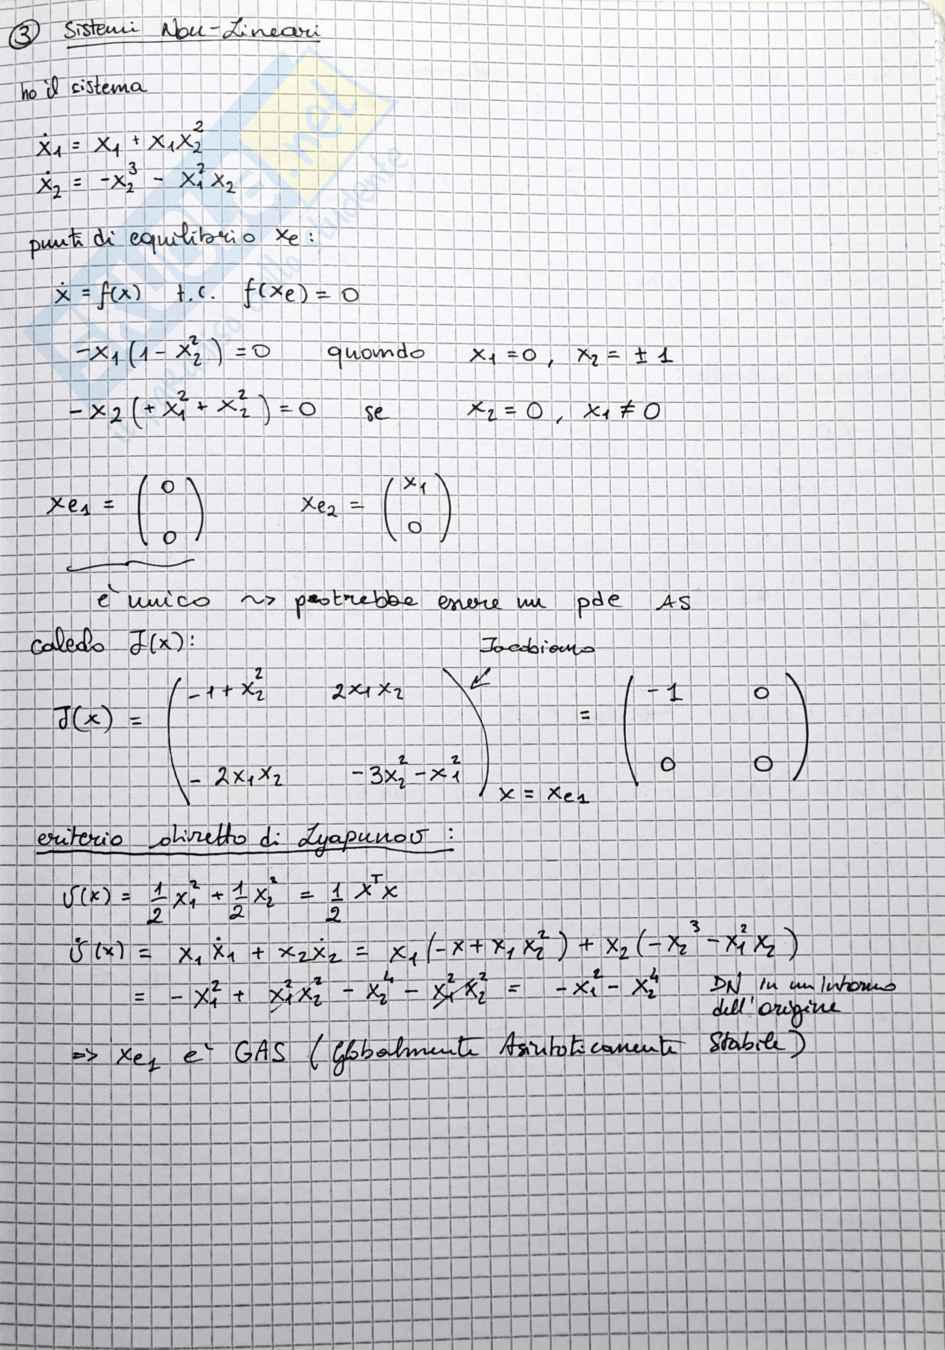 ③ Sistemi Non-Lineari
ho il sistema
ẋ₁ = x₁ + x₁x₂²
ẋ₂ = -x₂³ - x₁²x₂
punti di equilibrio xe :
ẋ = f(x) t.c. f(xe) = 0
-x₁(1 - x₂²) = 0 quando x₁ = 0, x₂ = ±1
-x₂(+x₁² + x₂²) = 0 se x₂ = 0, x₁ ≠ 0
xe₁ = (0 0) xe₂ = (x₁ 0)
è unico ~> potrebbe essere un pde AS
calcolo J(x): Jacobiano
J(x) = (-1 + x₂² 2x₁x₂ -2x₁x₂ -3x₂² - x₁²) x = xe₁ = (-1 0 0 0)
criterio diretto di Lyapunov :
V(x) = 1/2 x₁² + 1/2 x₂² = 1/2 xᵀx
V̇(x) = x₁ẋ₁ + x₂ẋ₂ = x₁(-x + x₁x₂²) + x₂(-x₂³ - x₁²x₂)
= -x₁² + x₁²x₂² - x₂⁴ - x₁²x₂² = -x₁² - x₂⁴ DN in un intorno
dell'origine
=> xe₁ è GAS (Globalmente Asintoticamente Stabile)